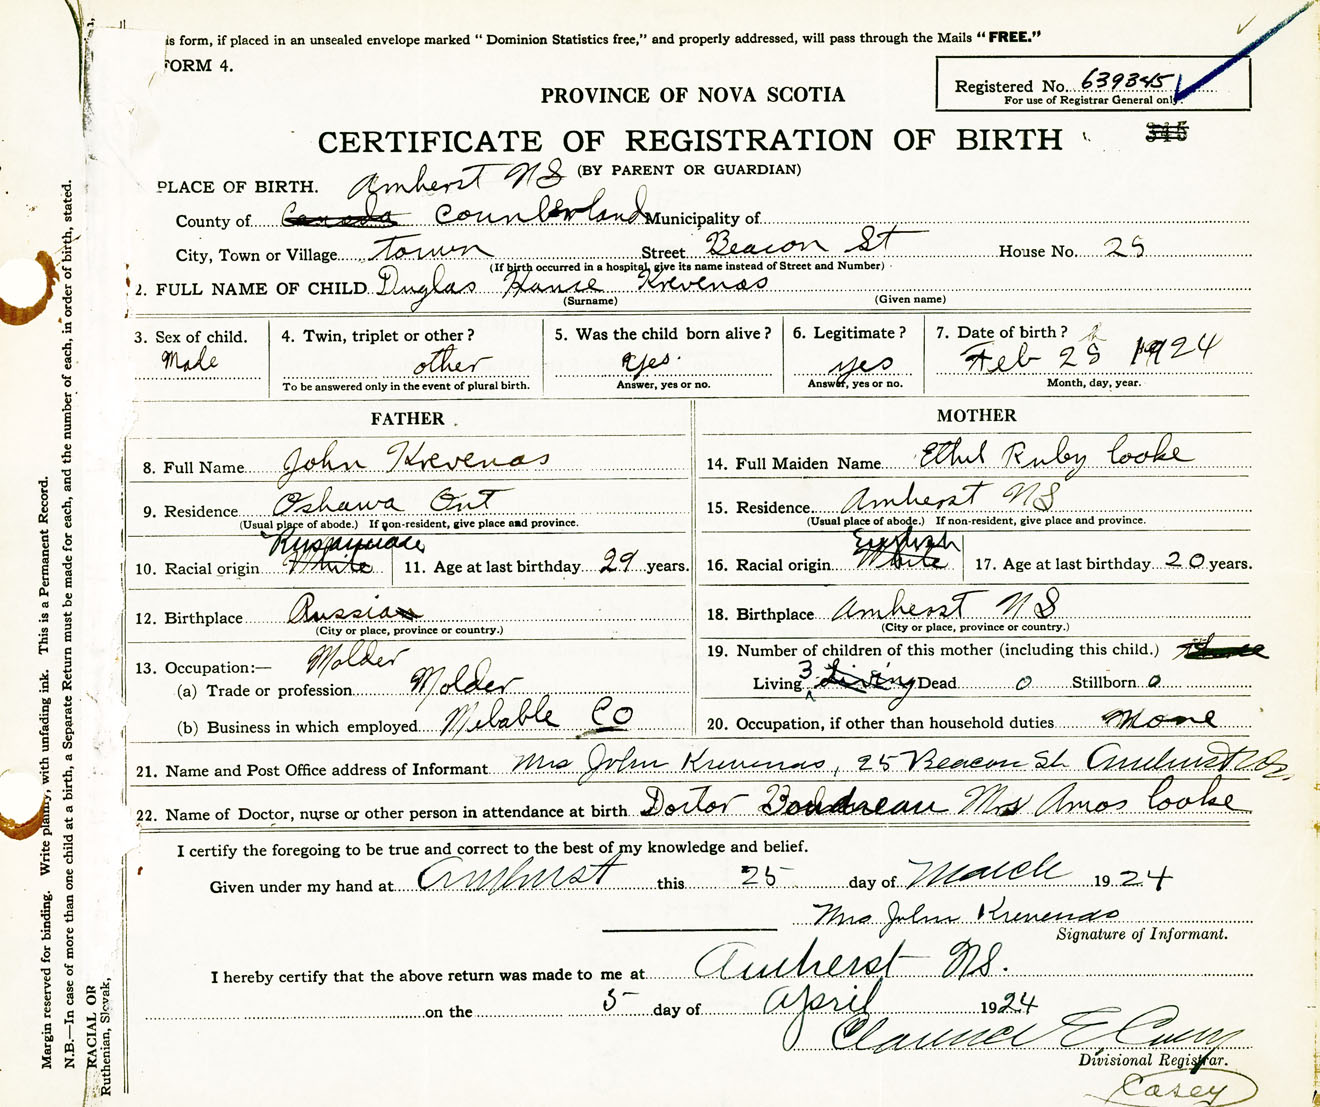 is form, if placed in an unsealed envelope marked " Dominion Statistics free," and properly addressed, will pass through the Mails "FREE."
FORM 4.
Registered No. 639345
For use of Registrar General only.
PROVINCE OF NOVA SCOTIA
345
CERTIFICATE OF REGISTRATION OF BIRTH
(BY PARENT OR GUARDIAN)
PLACE OF BIRTH. Amherst NS
County of Canada Counberland Municipality of
City, Town or Village town Street Beacon St House No. 25
(If birth occurred in a hospital, give its name instead of Street and Number)
2. FULL NAME OF CHILD Duglas Hance Krevenas
(Surname) (Given name)
3. Sex of child. 4. Twin, triplet or other? 5. Was the child born alive? 6. Legitimate? 7. Date of birth?
Made other yes. yes Feb 25 th 1924
To be answered only in the event of plural birth. Answer, yes or no. Answer, yes or no. Month, day, year.
FATHER MOTHER
8. Full Name John Krevenas
9. Residence Oshawa Ont
(Usual place of abode.) If non-resident, give place and province.
10. Racial origin White 11. Age at last birthday 29 years.
12. Birthplace Russian
(City or place, province or country.)
13. Occupation:— Molder
(a) Trade or profession Molder
(b) Business in which employed Melable Co
14. Full Maiden Name Ethel Ruby Cooke
15. Residence Amherst NS
(Usual place of abode.) If non-resident, give place and province.
English
16. Racial origin White 17. Age at last birthday 20 years.
18. Birthplace Amherst NS
(City or place, province or country.)
19. Number of children of this mother (including this child.) three
Living 3 Living Dead 0 Stillborn 0
20. Occupation, if other than household duties None
21. Name and Post Office address of Informant Mrs John Krevenas, 25 Beacon St. Amherst NS.
22. Name of Doctor, nurse or other person in attendance at birth Doctor Boudreau Mrs Amos Cooke
I certify the foregoing to be true and correct to the best of my knowledge and belief.
Given under my hand at Amherst this 25 day of March 1924
Mrs John Krevenas
Signature of Informant.
I hereby certify that the above return was made to me at Amherst NS.
on the 5 day of April 1924
Clarence E Casey
Divisional Registrar.
Casey
Margin reserved for binding. Write plainly, with unfading ink. This is a Permanent Record.
N.B.—In case of more than one child at a birth, a Separate Return must be made for each, and the number of each, in order of birth, stated.
RACIAL OR
Ruthenian, Slovak,